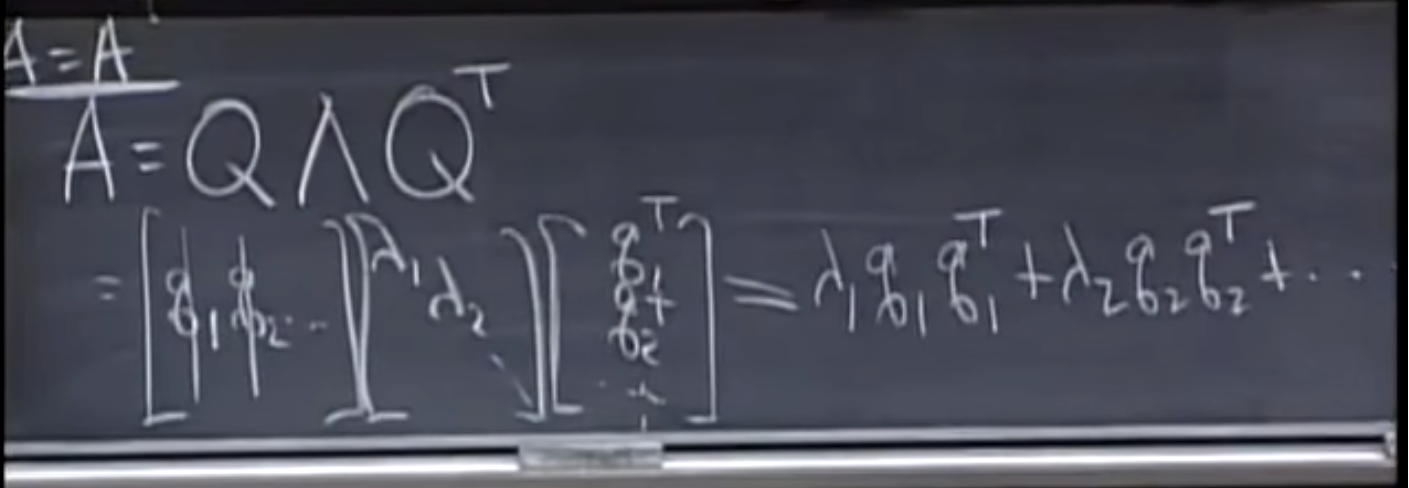 A = A'
A = Q Λ Qᵀ
= [q₁ q₂ ⋯] [λ₁ λ₂ ⋱] [q₁ᵀ q₂ᵀ ⋮] = λ₁q₁q₁ᵀ + λ₂q₂q₂ᵀ + ⋯